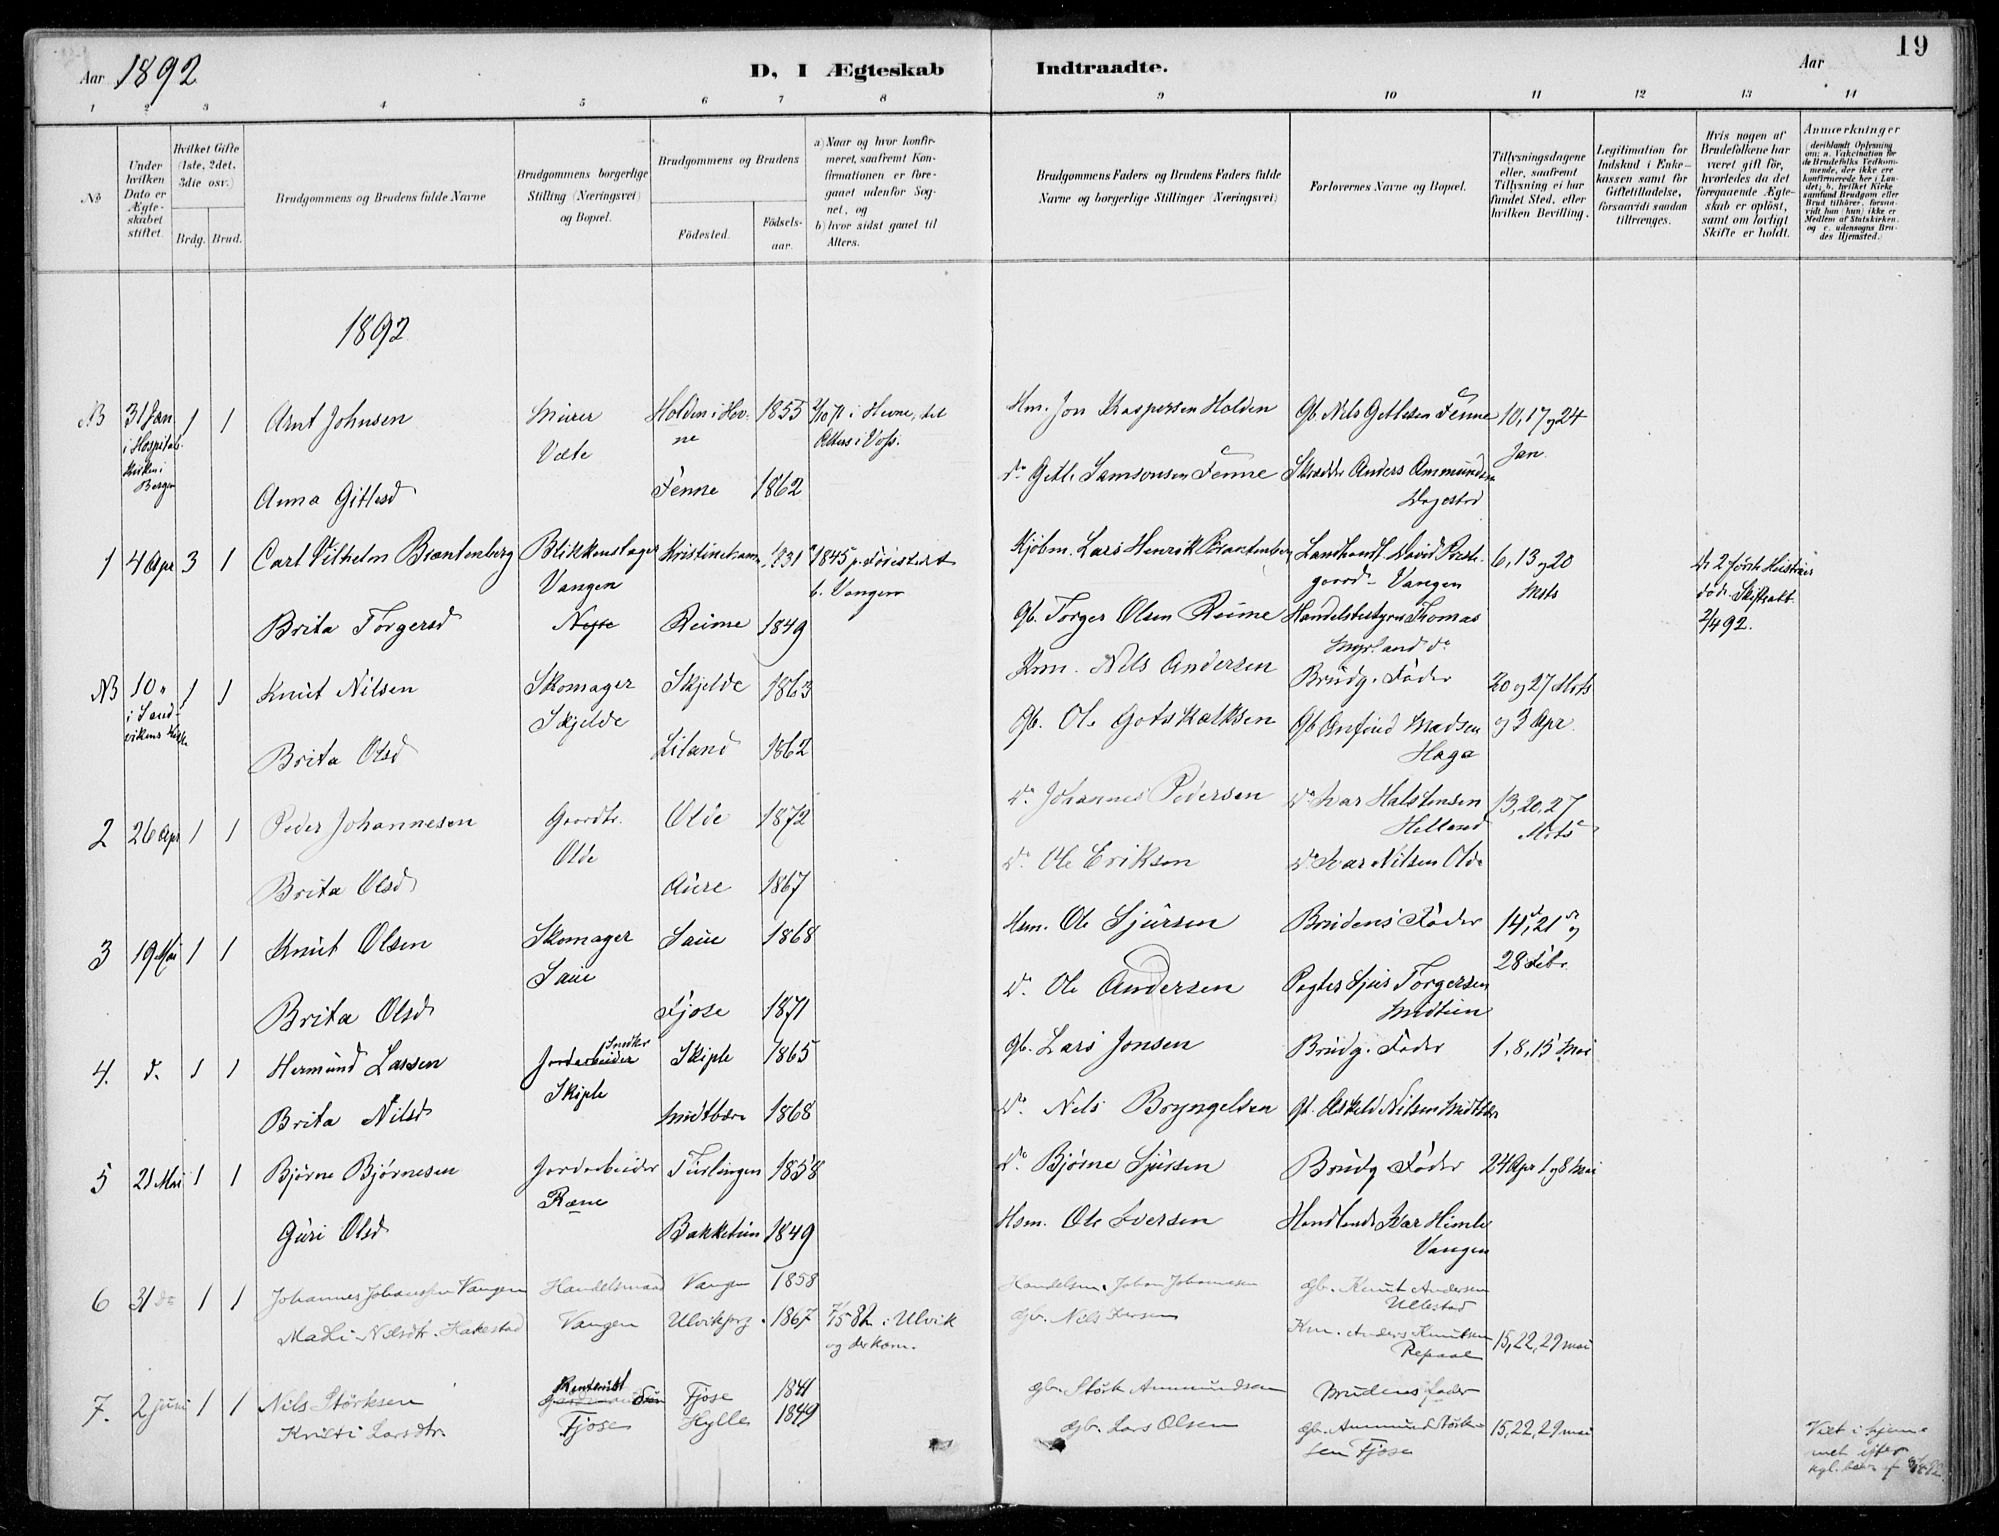 Aar 1892
D, I Ægteskab Indtraadte.
Aar
19
1 2 3 4 5 6 7 8 9 10 11 12 13 14
No
Under hvilken Dato er Ægteskabet stiftet.
Hvilket Gifte (1ste, 2det, 3die osv.)
Brdg. Brud.
Brudgommens og Brudens fulde Navne
Brudgommens borgerlige Stilling (Næringsvei) og Bopæl.
Brudgommens og Brudens
Födested.
Födselsaar.
a) Naar og hvor konfirmeret, saafremt Konfirmationen er foregaaet udenfor Sognet, og
b) hvor sidst gaaet til Alters.
Brudgommens Faders og Brudens Faders fulde Navne og borgerlige Stillinger (Næringsvei)
Forlovernes Navne og Bopæl.
Tillysningsdagene eller, saafremt Tillysning ei har fundet Sted, efter hvilken Bevilling.
Legitimation for Indskud i Enkekassen samt for Giftetilladelse, forsaavidt saadan tiltrænges.
Hvis nogen af Brudefolkene har været gift för, hvorledes da det foregaaende Ægteskab er oplöst, samt om lovligt Skifte er holdt.
Anmærkninger
(deriblandt Oplysning om: a. Vakcination for de Brudefolks Vedkommende, der ikke ere konfirmerede her i Landet; b. hvilket Kirkesamfund Brudgom eller Brud tilhörer, forsaavidt han (hun) ikke er Medlem af Statskirken, og c. udensogns Brudes Hjemsted.)
1892
NB 31 Jan i Hospitalskirken i Bergen 1 1 Arnt Johnsen Murer Væte Holden i Hevne 1855 i Hevne, til Alters i Voss. Hm. Jon Kaspersen Holden Gb. Nels Getlesen Fenne 10, 17 og 24 Jan.
Anna Gitlesd Fenne 1862 do Getle Samsonsen Fenne Skrædder Anders Ammundsen
1 4 Apr 3 1 Carl Vilhelm Brantenberg Blikkenslager Vangen Kristinehamn 1831 1845 p. Födestedet b. Vangen Kjøbm. Lars Henrik Brantenberg Landhandl. David Vangen 6, 13 og 20 Mrts De 2 første Hustruer død. Skifteatt. 2/4 92.
Brita Torgersd Reime 1849 Gb. Torger Olsen Reime Handelsbestyrer Thomas Myrland do
NB 10 " i Sandvikens Kirke 1 1 Knut Nilsen Skomager Skjelde Skjelde 1863 Nils Andersen Brudg. Fader 20 og 27 Mrts og 3 Apr.
Brita Olsd Liland 1862 Gb. Ole Gotskalksen Gb Anfind Madsen Haga
2 26 Apr 1 1 Peder Johannesen Gaardbr. Olde Olde 1872 do Johannes Pedersen do Ivar Halstensen Helland 13, 20, 27 Mrts
Brita Olsd Aure 1867 do Ole Eriksen do Ivar Nilsen Olde
3 19 Mai 1 1 Knut Olsen Skomager Saue Saue 1868 Hsm. Ole Sjursen Brudens Fader 14de, 21de og 28 Febr.
Brita Olsd Fjose 1871 do Ole Andersen Sjur Torgersen
4. d. 1 1 Hermund Larsen Snedker Jordarbeider Skiple Skiple 1865 Gb. Lars Jonsen Brudg. Fader 1, 8, 15 Mai
Brita Nilsd Midtbøen 1868 do Nels Bryngelsen Gb. Eskeld Nilsen
5 21 Mai 1 1 Bjørne Bjørnesen Jordarbeider Ræne Tverlingen 1858 do Bjørne Sjursen Brudg Fader 24 Apr 1 og 8 Mai
Guri Olsd Bakketun 1849 Hsm. Ole Iversen Handlende Ivar Himle Vangen
6 31 do 1 1 Johannes Johansen Vangen Handelsmand Vangen 1858 Handelsm. Johan Johannesen Gbr. Knut Andersen Ullestad
Madli Nilsdtr. Hakestad Vangen Ulvik 1867 7/5 82 i Ulvik og der kom. Gbr. Nils Iversen Km. Anders Knutsen Repaal 15, 22, 29 mai
7. 2 juni 1 1 Nils Størksen Fjose Fjose 1841 Gbr. Størk Ammundsen Brudens fader
Kristi Larsdtr. Hylle 1849 Gbr. Lars Olsen Gbr. Ammund Størksen Fjose 15, 22, 29 mai Viet i hjemmet efter kgl. bev. af